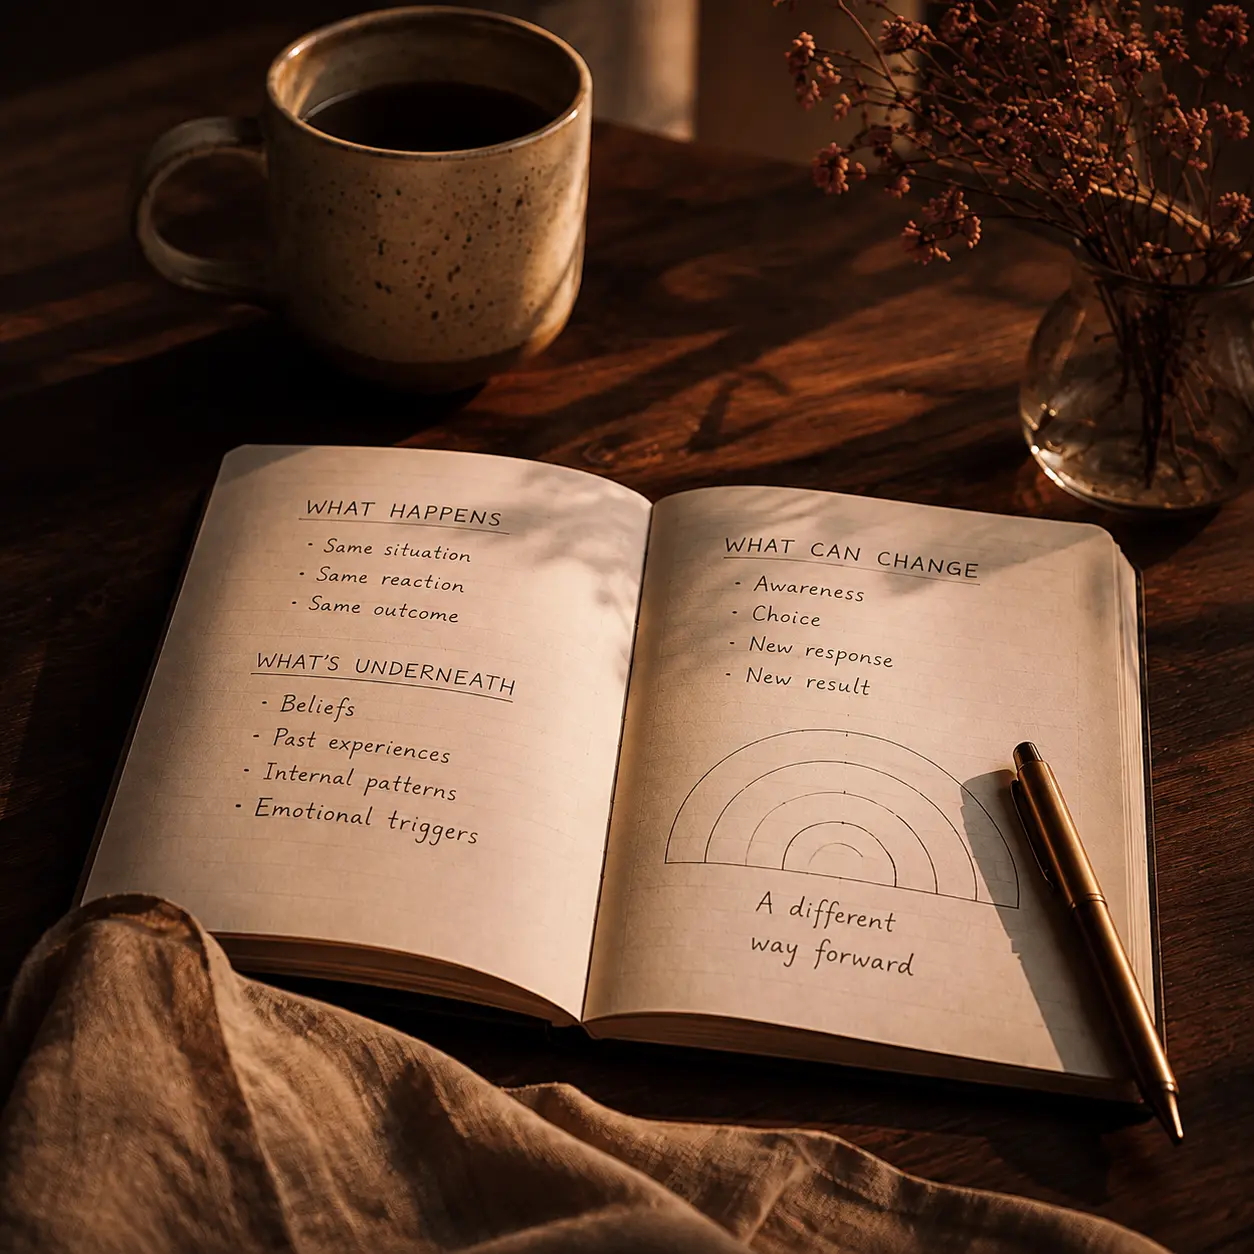 WHAT HAPPENS
· Same situation
· Same reaction
· Same outcome
WHAT'S UNDERNEATH
· Beliefs
· Past experiences
· Internal patterns
· Emotional triggers
WHAT CAN CHANGE
· Awareness
· Choice
· New response
· New result
A different
way forward